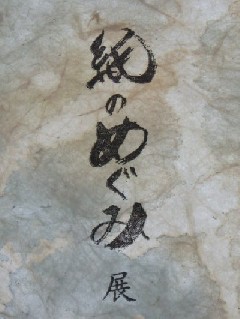 紙のめぐみ
展